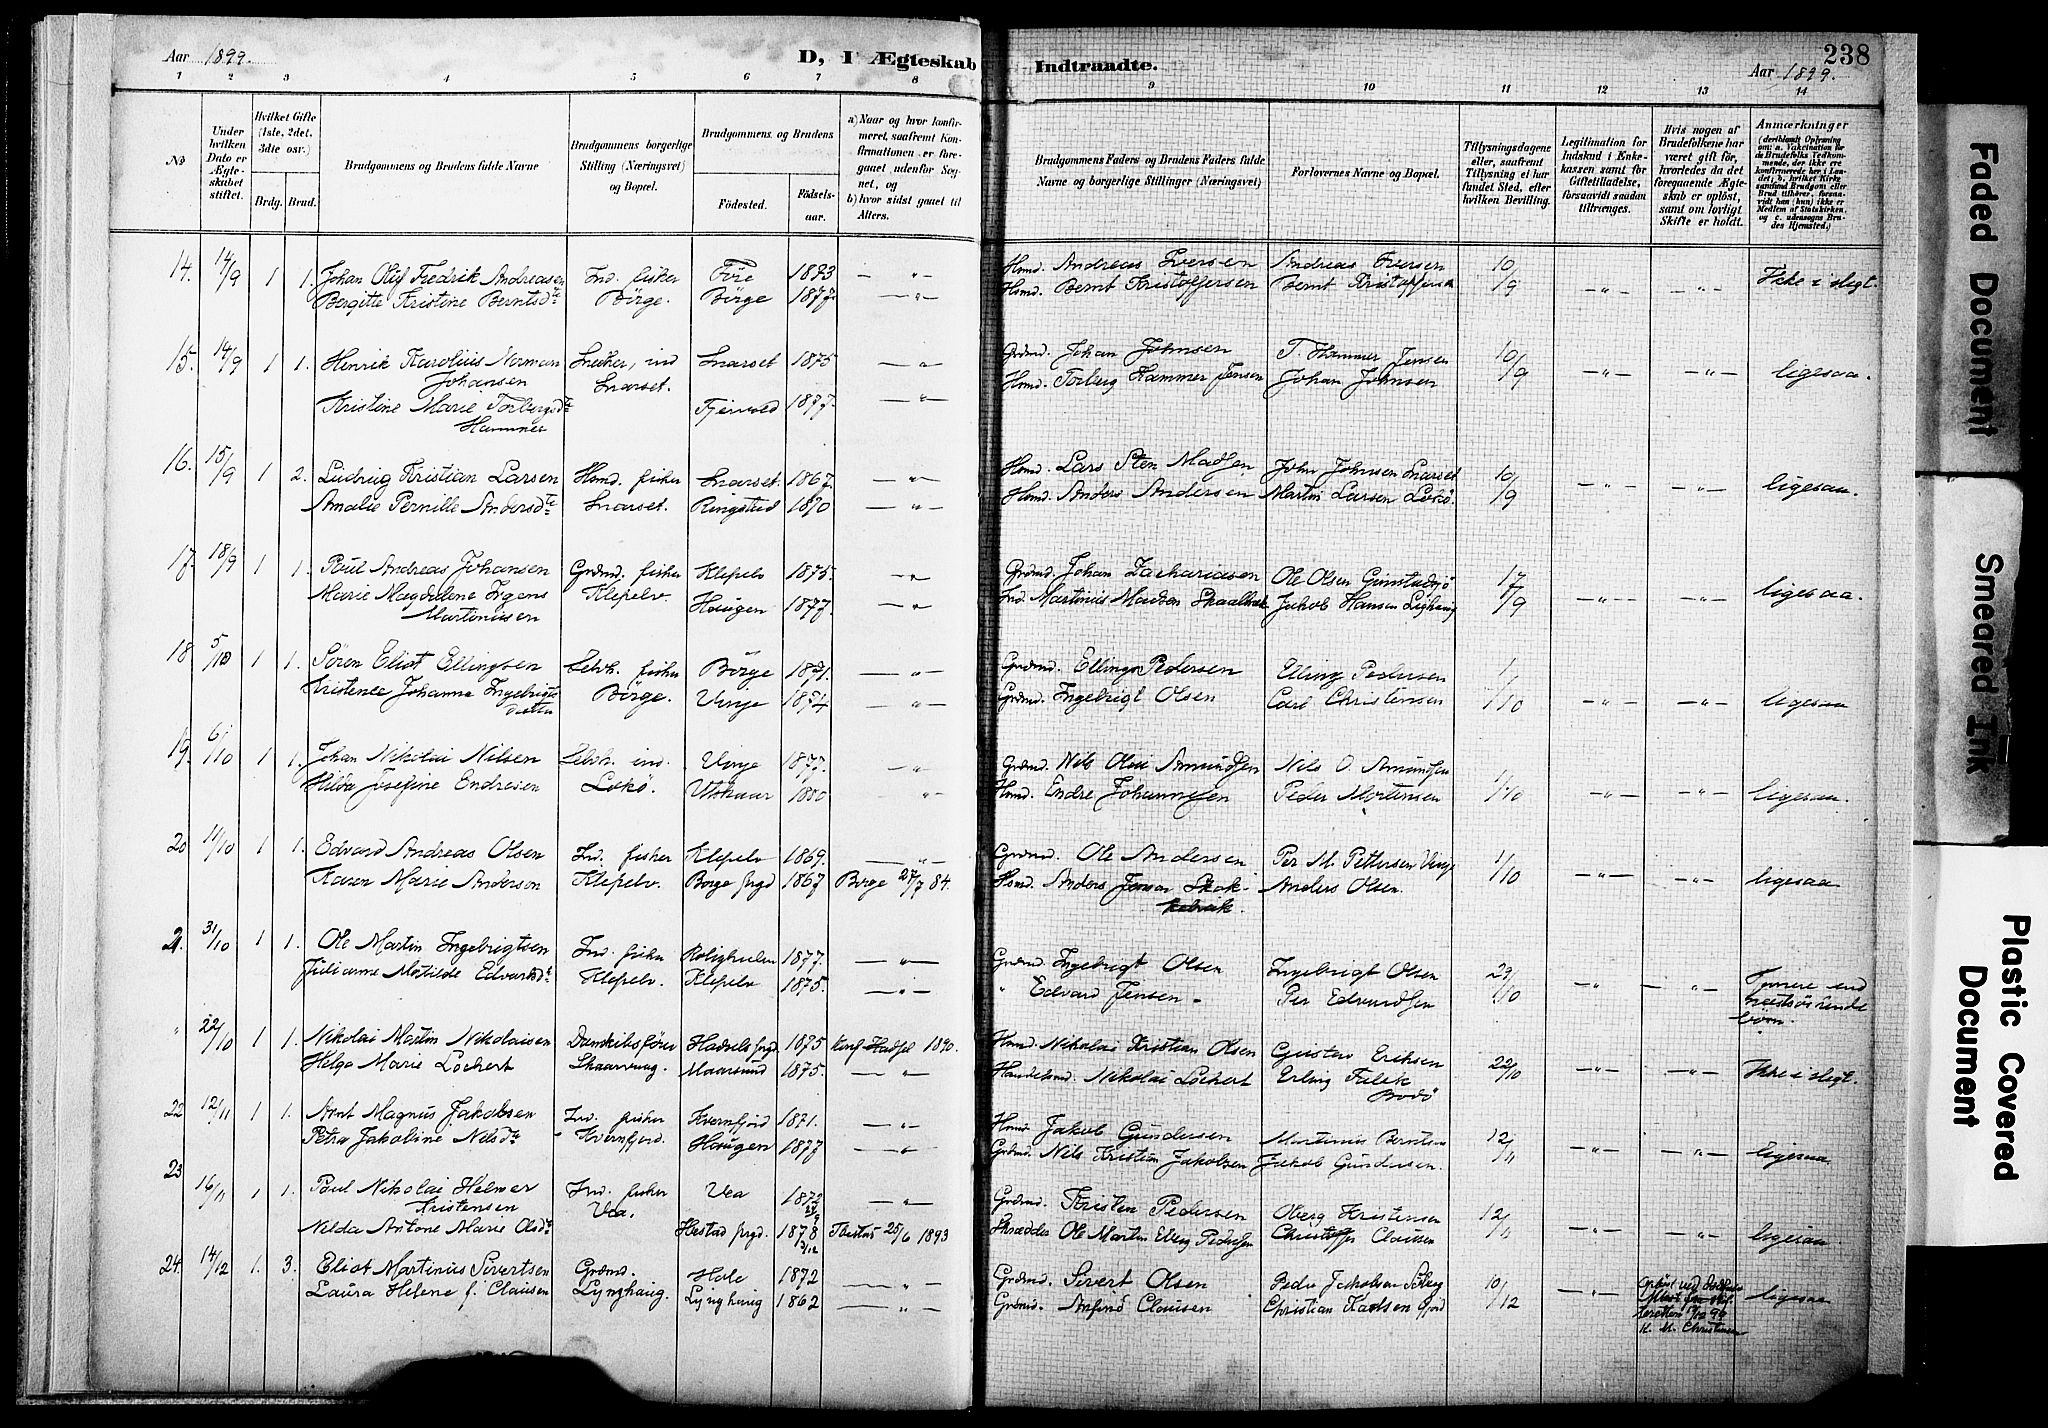 Aar 1899.
D, I Ægteskab Indtraadte.
238
Aar 1899.
1 2 3 4 5 6 7 8 9 10 11 12 13 14
No
Under hvilken Dato er Ægteskabet stiftet.
Hvilket Gifte (1ste, 2det, 3die osv.)
Brdg. Brud.
Brudgommens og Brudens fulde Navne
Brudgommens borgerlige Stilling (Næringsvei) og Bopæl.
Brudgommens og Brudens
Fødested.
Fødselsaar.
a) Naar og hvor konfirmeret, saafremt Konfirmationen er foregaaet udenfor Sognet, og
b) hvor sidst gaaet til Alters.
Brudgommens Faders og Brudens Faders fulde Navne og borgerlige Stillinger (Næringsvei)
Forlovernes Navne og Bopæl.
Tillysningsdagene eller, saafremt Tillysning ei har fundet Sted, efter hvilken Bevilling.
Legitimation for Indskud i Enkekassen samt for Giftetilladelse, forsaavidt saadan tiltrænges.
Hvis nogen af Brudefolkene har været gift før, hvorledes da det foregaaende Ægteskab er opløst, samt om lovligt Skifte er holdt.
Anmærkninger
(deriblandt Oplysning om: a. Vakcination for de Brudefolks Vedkommende, der ikke ere konfirmerede her i Landet; b. hvilket Kirkesamfund Brudgom eller Brud tilhører, forsaavidt han (hun) ikke er Medlem af Statskirken, og c. udensogns Brudes Hjemsted.)
14. 14/9 1 1. Johan Oluf Fredrik Andreassen Ind. fisker Före 1873 — " — Hsmd. Andreas Iversen Andreas Iversen 10/9 — " — — " — Ikke i slegt.
Bergitte Kristine Berntsdtr Börge. Börge 1877. — " — Hsmd. Bernt Kristoffersen Bernt Kristoffersen
15. 14/9 1 1. Henrik Karolius Norman Snedker, ind Snarset 1875 — " — Grdmd. Johan Johnsen T. Hammer Jensen 10/9 — " — — " — ligesaa.
Johansen Snarset. Hsmd. Torberg Hammer Jensen Johan Johnsen
Kristine Marie Torbergsdtr Fjervold 1877. — " —
Hammer
16. 15/9 1 2. Ludvig Kristian Larsen Hsmd. fisker Snarset. 1867. — " — Hsmd. Lars Sten Madsen John Johnsen Snarset 10/9 — " — — " — ligesaa.
Amalie Pernille Andersdtr Snarset. Ringstad 1870 — " — Hsmd. Anders Andersen Martin Larsen Lokö.
17. 18/9 1 1. Poul Andreas Johansen Grdmd. fisker Klepelv 1875. — " — Grdmd. Johan Zachariasen Ole Olsen 17/9 — " — — " — ligesaa.
Marie Magdalene Irgens Klepelv. Haugen 1877. — " — Ind. Martinus Madsen Jakob Hansen
Martinussen
18 5/10 1 1. Sören Eliot Ellingsen Selvh. fisker Börge 1871. — " — Grdmd. Elling Pedersen Elling Pedersen 1/10 — " — — " — ligesaa
Kristence Johanna Ingebrigts Börge. Vinje 1874 — " — Grdmd. Ingebrigt Olsen Carl Christensen
datter
19. 6/10 1 1. Johan Nikolai Nilsen Selvh. ind. Vinje 1877. " Grdmd. Nils Olai Amundsen Nils O. Amundsen 1/10 — " — — " — ligesaa.
Hilda Josefine Endresen Lokö. Utskaar 1880 — " — Hsmd. Endre Johannesen Peder Mortensen
20 11/10 1 1. Edvard Andreas Olsen Ind. fisker Klepelv 1869. — " — Grdmd. Ole Andersen Per M. Pettersen Vinje 1/10 — " — — " — ligesaa
Karen Marie Anderson Klepelv. Borge prgd 1867 Borge 27/7 84. Hsmd. Anders Jensen Anders Olsen.
21. 31/10 1 1. Ole Martin Ingebrigtsen Ind. fisker Rolighulen 1877. — " — Grdmd. Ingebrigt Olsen Ingebrigt Olsen 29/10 — " — — " — Fjernere end
Julianne Matilde Edvardsdtr Klepelv. Klepelv 1875. — " — " Edvard Jensen Per Edvardsen næstsöskende
börn.
" 22/10 1 1. Nikolai Martin Nikolaisen Damskibsförer Hadsels prgd. 1875 Konf. Hadsel 1890. Hsmd. Nikolai Kristian Olsen Gustav Eriksen 22/10 — " — — " — Ikke i slegt.
Helga Marie Lockert Skaarvaag. Maarsund 1875. — " — Handelsmd. Nikolai Lockert Erling Falck
Bodö
22 12/11 1 1. Arnt Magnus Jakobsen Ind. fisker Kvernfjord 1871. — " — Hsmd. Jakob Gundersen Martinus Berntsen 12/11 — " — — " — ligesaa
Petra Jakobine Nilsdtr Kvernfjord. Haugen 1877 — " — Grdmd. Nils Kristian Jakobsen Jakob Gundersen.
23 16/11 1 1. Poul Nikolai Helmer Ind. fisker Vea 1872 — " — Grdmd. Kristen Pedersen Oberg Kristensen 12/11 — " — — " — ligesaa
Kristensen Vea.
Nilda Antone Marie Olsdtr prgd. 1878 25/6 1893 Skrædder Ole Martin Pedersen Christoffer Clausen
24. 14/12 1. 3. Eliot Martinus Sivertsen Grdmd. Hole 1872 — " — Grdmd. Sivert Olsen Peder Jakobsen 10/12 — " — ligesaa
Laura Helene f. Clausen Lynghaug. Lynghaug 1862 — " — Grdmd. Anfind Clausen Christian Karlsen
K. M. Christensen
Faded Document
Smeared Ink
Plastic Covered Document